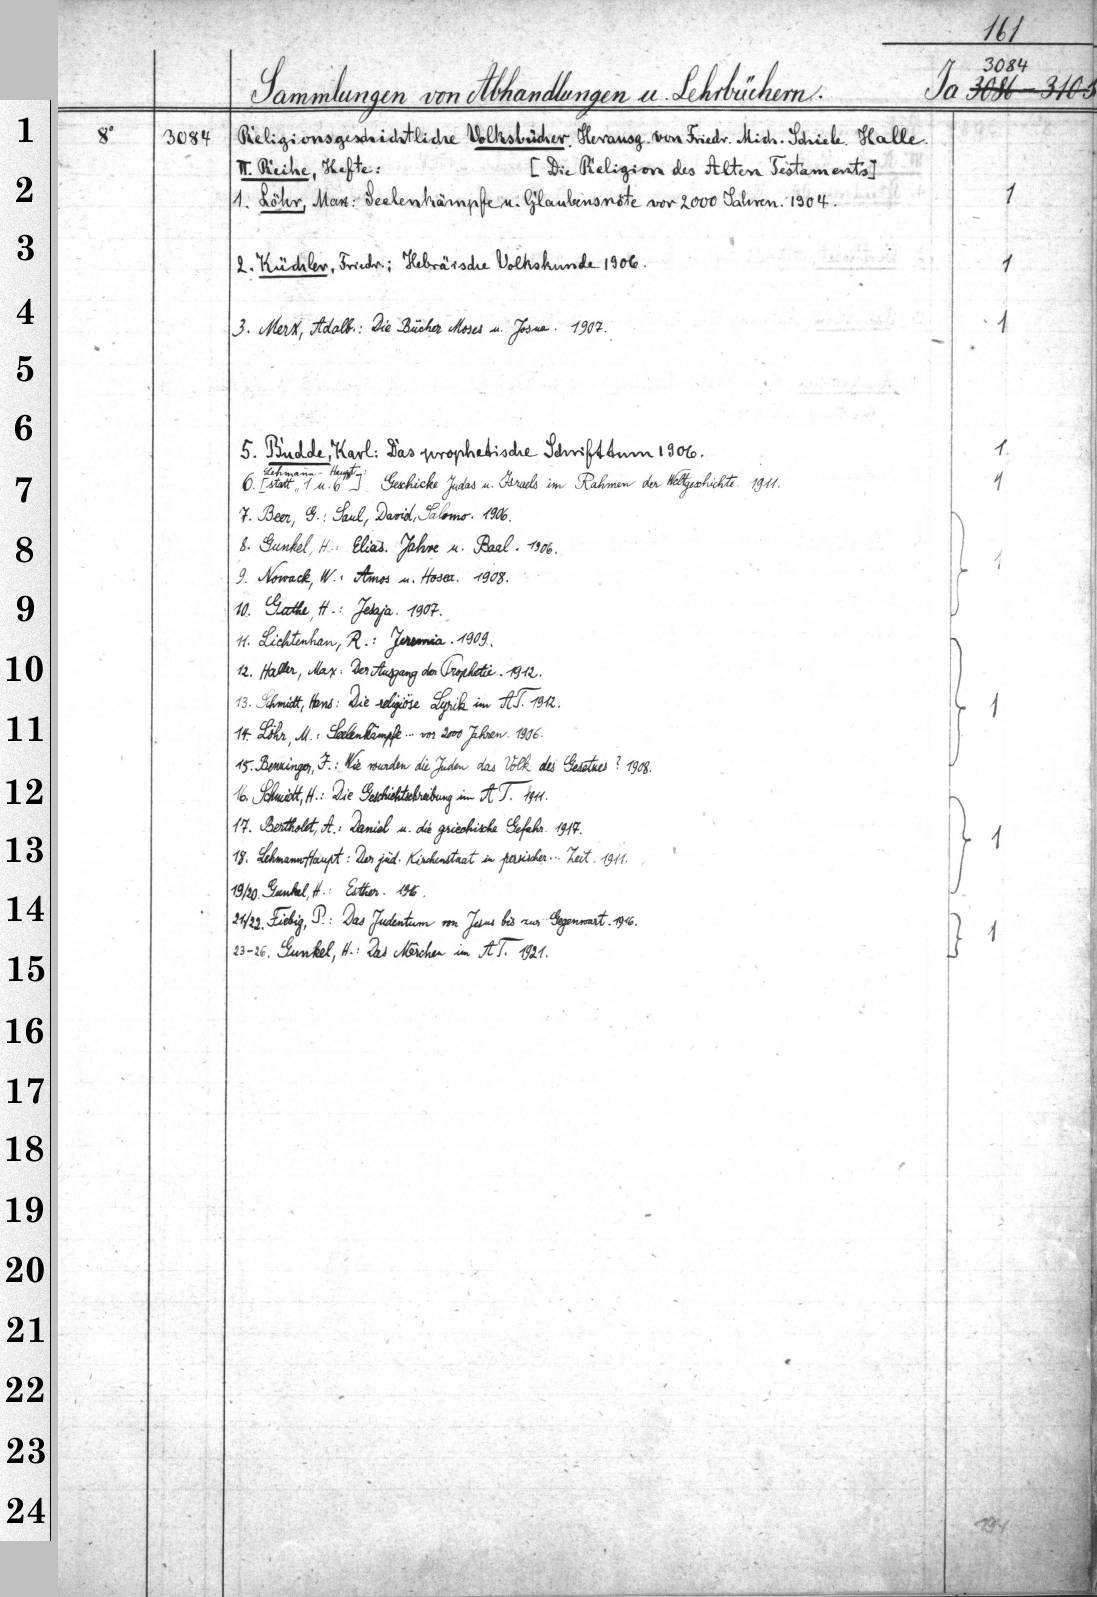 161
3084
Sammlungen von Abhandlungen u. Lehrbüchern. Ja 3086 – 3105
1 8° 3084 Religionsgeschichtliche Volksbücher. Herausg. von Friedr. Mich. Schiele. Halle.
II. Reihe, Hefte: [Die Religion des Alten Testaments]
2 1. Löhr, Max: Seelenkämpfe u. Glaubensnöte vor 2000 Jahren. 1904. 1
3 2. Küchler, Friedr.: Hebräische Volkskunde 1906. 1
4 3. Merx, Adalb.: Die Bücher Moses u. Josua. 1907. 1
5
6 5. Budde, Karl: Das prophetische Schrifttum 1906. 1.
Lehmann-Haupt:
7 6. [statt „1 u. 6"] Geschicke Judas u. Israels im Rahmen der Weltgeschichte. 1911. 1
7. Beer, G.: Saul, David, Salomo. 1906.
8 8. Gunkel, H.: Elias. Jahve u. Baal. 1906. 1
9. Nowack, W.: Amos u. Hosea. 1908.
9 10. Guthe, H.: Jesaja. 1907.
11. Liechtenhan, R.: Jeremia. 1909.
10 12. Haller, Max: Der Ausgang der Prophetie. 1912.
13. Schmidt, Hans: Die religiöse Lyrik im AT. 1912. 1
11 14. Löhr, M.: Seelenkämpfe ... vor 2000 Jahren. 1906.
15. Benzinger, J.: Wie wurden die Juden das Volk des Gesetzes? 1908.
12 16. Schmidt, H.: Die Geschichtschreibung im AT. 1911.
17. Bertholet, A.: Daniel u. die griechische Gefahr. 1917. 1
13 18. Lehmann-Haupt: Der jüd. Kirchenstaat in persischer ... Zeit. 1911.
19/20. Gunkel, H.: Esther. 1916.
14 21/22. Fiebig, P.: Das Judentum von Jesus bis zur Gegenwart. 1916. 1
15 23-26. Gunkel, H.: Das Märchen im AT. 1921.
16
17
18
19
20
21
22
23
24